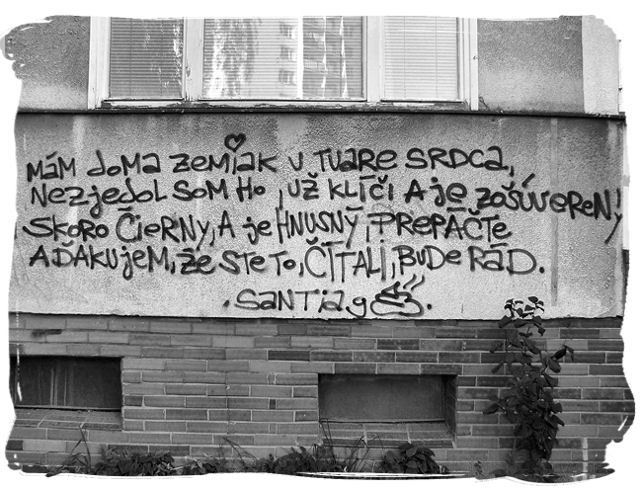 MÁM doMA zeMiAK V TVARE SRDCA,
NEZjedoL SOM HO, UŽ KLÍČI A je ZOŠÚVEREN!
SKORO ČIERNY, A je HNUSNÝ, PREPÁČTE
A ĎAKUjeM, že STE TO, ČÍTALI, BUDE RÁD.
.SANTiAgO.